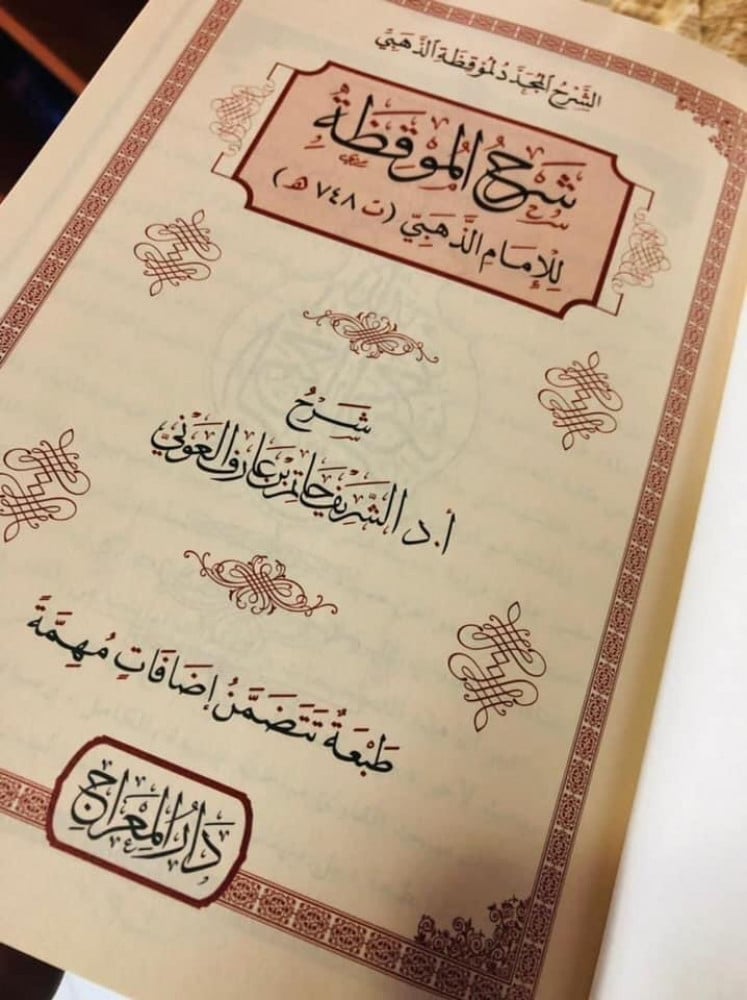 الشَّرْحُ المُجَدَّدُ لمُوقِظَةِ الذَّهَبِيّ
شَرْحُ المُوقِظَةُ
لِلإِمَامِ الذَّهَبِيّ (ت ٧٤٨ هـ)
شَرْحُ
أ.د الشَّرِيف حَاتِم بْن عَارِف العَوْنِيّ
طَبْعَةٌ تَتَضَمَّنُ إِضَافَاتٍ مُهِمَّةً
دَارُ المِعْرَاجِ